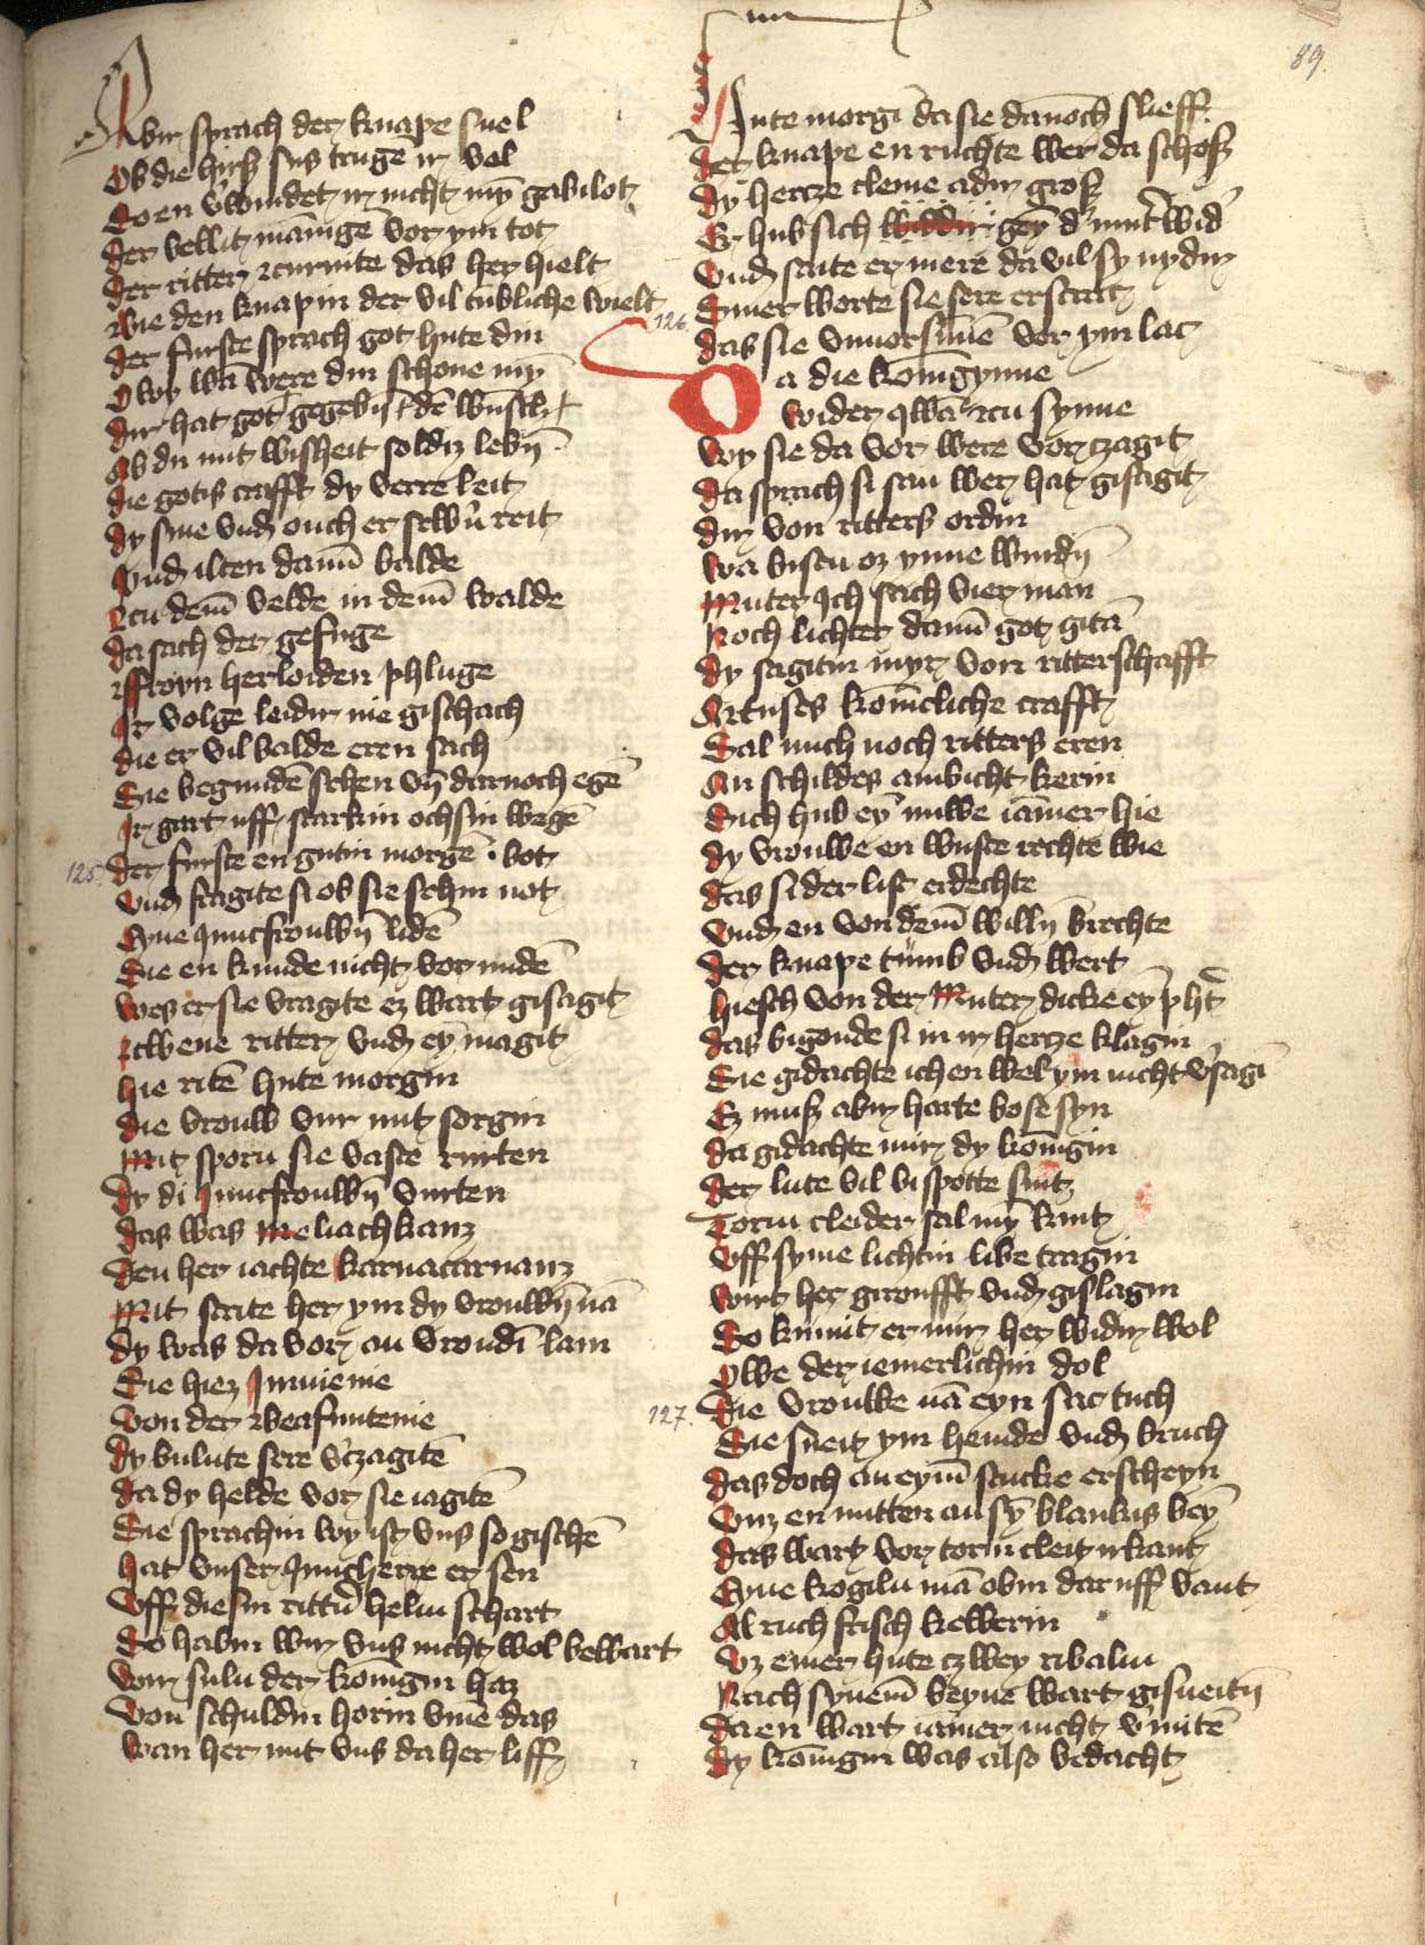 89.
Abir sprach der knape snel
Ob die hirsz sus truge ir vel
So en v'wundet ir nicht myn gabilot
der vellit mānige vor ym tot
der ritter zcurnite das her hielt
wie den knapin der vil tubliche wielt
der furste sprach got hute din
Owy wā were din schone myn
dir hat got gegebin dē wunsch
Ab du mit wisheit soldiz lebin
die gotis crafft dy verre leit
dy sine vnd ouch er selbir reit
Vnd ilten dannē balde
zcu demē velde in demē walde
da sach der gefuge
zffroyn herloiden phluge
Ir volge leidir nie gischach
die er vil balde eren sach
Sie begundē sehen vn darnoch egē
Ir gart uff starkin ochsin wegē
125.
der furste en gutin morgē bot
vnd fragite si ob sie sehin not
Eyne Juncfrouwin lidē
die en kunde nicht vormidē
wes er sie vragite ez wart gisagit
zcwene ritter vnd ey magit
hie ritē hute morgin
die vrouw vur mit sorgin
Mit sporn sie vaste rurten
dy di Juncfrouwin vurten
das was meliachkanz
den her iachte karnacarnanz
Mit strite her ym dy vrouwin nā
dy was da vor an vroudī lam
Sie hiez Imnieme
von der zbeafuntenie
dy bulute sere v'czagitē
da dy helde vor sie iagitē
Sie sprachin wy ist vns so gischē
hat vnser Juncherre er sen
vff diesin rittir helm schart
So habin wir vns nicht wol bewart
wir suln der konīgin haz
von schuldin horin vmē das
wan her mit vns da her liff
Hute morgī da sie dannoch slieff
der knape en ruchte wer da schosz
dy hercze cleine adir grosz
Er hub sich gey d' muter wid'
vnd saite er mere da vil sy nydir
Siner worte sie sere erscrac
das sie vnuorsunnē vor ym lac
126.
Da die konīgynne
wider qwā zcu synne
wy sie da vor were vorczagit
da sprach si san wer hat gisagit
dir von ritters ordin
wa bistu oz ynne wurdin
Muter Ich sach vier man
Noch lichter dannē got gitā
dy sagitin myr von ritterschafft
Artuses konīcliche crafft
Sal mich noch ritters eren
An schildes ambicht kerin
Sich hub ey nuwe iāmer hie
dy vrouwe en wuste rechte wie
das si der list erdechte
vnd en von demē willin brechte
der knape tumb vnd wert
hiesch von der Muter dicke ey pht
das bigonde si in ir hercze klagin
Sie gidachte ich en wel ym nicht v'sagī
Ez musz abir harte bose syn
da gidachte mir dy konīgin
der lute vil bi spotte sint
Torin cleider sal my kint
vff syme lichtin libe tragin
wirt her giroufft vnd gislagin
So kumit er mir her widir wol
Owe der iemerlichin dol
127.
Die vrouwe nā eyn sac tuch
Sie sneit ym hemde vnd bruch
das doch an eymē stucke erscheyn
vnz en mitten an sy blankis bey
das wart vor torin cleit irkant
Eyne kogiln mā obin dar uff vant
Al ruch frisch kelberin
vz einer hute czwey ribalin
Nach synemē beyne wart gisneitin
da en wart iāmer nicht v'mitē
dy konīgin was also bedacht